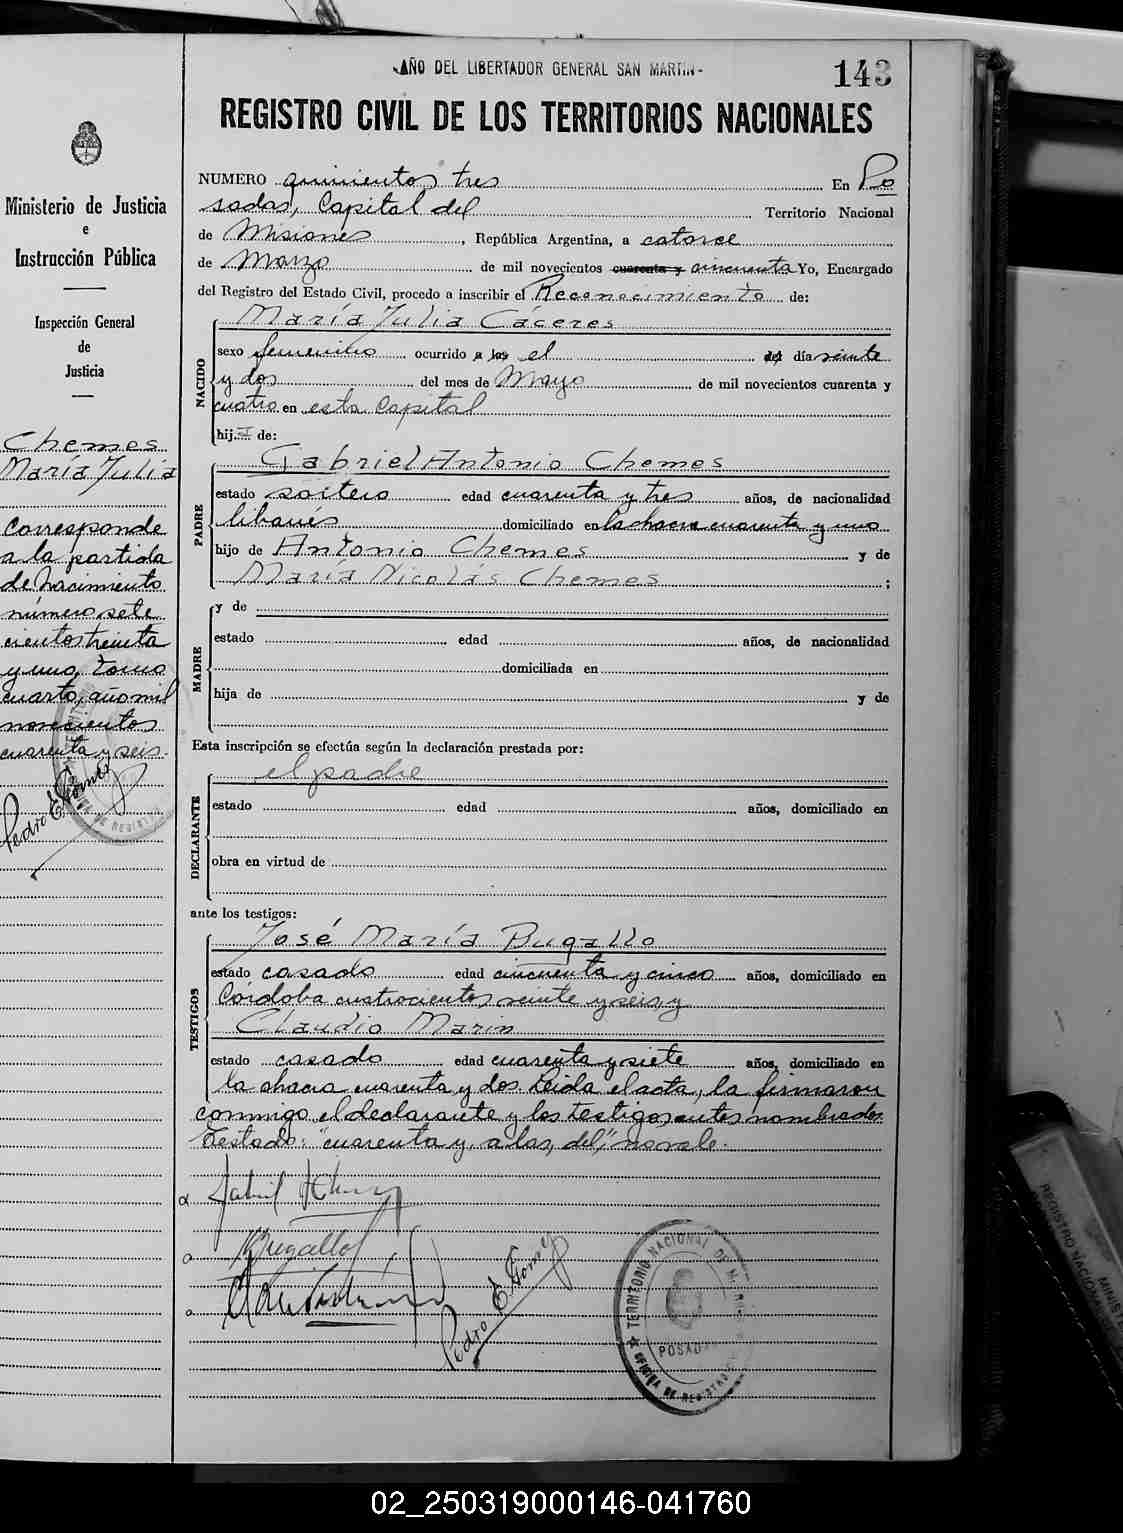 -AÑO DEL LIBERTADOR GENERAL SAN MARTIN-
143
REGISTRO CIVIL DE LOS TERRITORIOS NACIONALES
Ministerio de Justicia
e
Instrucción Pública
Inspección General
de
Justicia
Chemes
María Julia
Corresponde
a la partida
de nacimiento
número sete
cientos treinta
y uno, tomo
cuarto, año mil
novecientos
cuarenta y seis.
Pedro E. Gomes
NUMERO quinientos tres En Po
sadas, Capital del Territorio Nacional
de Misiones, República Argentina, a catorce
de Marzo de mil novecientos cuarenta y cincuenta Yo, Encargado
del Registro del Estado Civil, procedo a inscribir el Reconocimiento de:
María Julia Cáceres
NACIDO
sexo femenino ocurrido a las el del día veinte
y dos del mes de Mayo de mil novecientos cuarenta y
cuatro en esta Capital
hij de:
PADRE
Gabriel Antonio Chemes
estado soltero edad cuarenta y tres años, de nacionalidad
libanés domiciliado en la chacra cuarenta y uno
hijo de Antonio Chemes y de
María Nicolás Chemes ;
MADRE
y de
estado edad años, de nacionalidad
domiciliada en
hija de y de
Esta inscripción se efectúa según la declaración prestada por:
DECLARANTE
el padre
estado edad años, domiciliado en
obra en virtud de
ante los testigos:
TESTIGOS
José María Bugallo
estado casado edad cincuenta y cinco años, domiciliado en
Córdoba cuatrocientos veinte y seis, y
Claudio Marin
estado casado edad cuarenta y siete años, domiciliado en
la chacra cuarenta y dos. Leida el acta, la firmaron
conmigo el declarante y los testigos antes nombrados.
Testado: "cuarenta y, a las, del," no vale.
Bugallo
Pedro E. Gomes
TERRITORIO NACIONAL DE MISIONES
POSADAS
OFICINA DE REGISTRO
REGISTRO NACIONAL
MINISTE
02_250319000146-041760